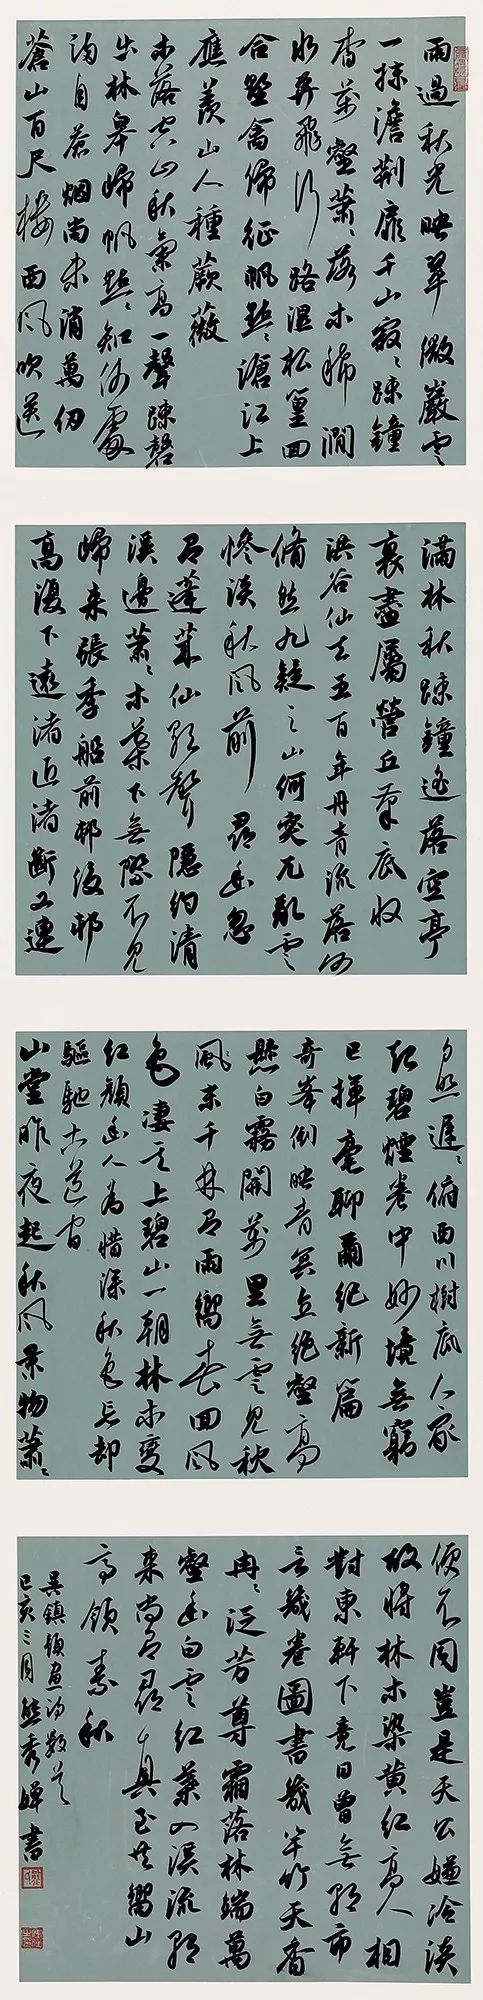 雨過秋光映翠微巖雲
一抹澹荊扉千山寂〻踈鐘
杳萬壑蕭〻落木稀澗
水奔飛行路濕松篁回
合野禽歸征帆點〻滄江上
應羨山人種蕨薇
木落空山秋氣高一聲踈磬
出林皋歸帆點〻知何處
滿目蒼烟尚未消萬仞
蒼山百尺樓西風吹送
滿林秋踈鐘遙落空亭
裏盡屬營丘筆底收
洪谷仙去五百年丹青流落何
翛然九疑之山何突兀亂雲
慘淡秋風前尋幽忽
有蓬萊仙歌聲隱約清
溪邊蕭〻木葉下無際不見
歸來張季船前邨後邨
高復下遠渚近渚斷又連
夕照遲〻俯西川樹底人家
紅碧煙卷中妙境無窮
已揮毫聊爾紀新篇
奇峯倒映青冥立絕壑高
懸白霧開萬里無雲見秋
風來千林有雨嚮春回風
色凄其上碧山一朝林木變
紅顏幽人為惜深秋色忘却
驅馳古道間
山堂昨夜起秋風景物蕭〻
便不同豈是天公嫌冷淡
故將林木染黃紅高人相
對東軒下竟日曾無歌市
言幾卷圖書幾竿竹天香
冉〻泛芳尊霜落林端萬
壑幽白雲紅葉入溪流
來尚有尋真至共嚮山
高領素秋
吳鎮題畫詩數首
己亥三月熊秀婵書